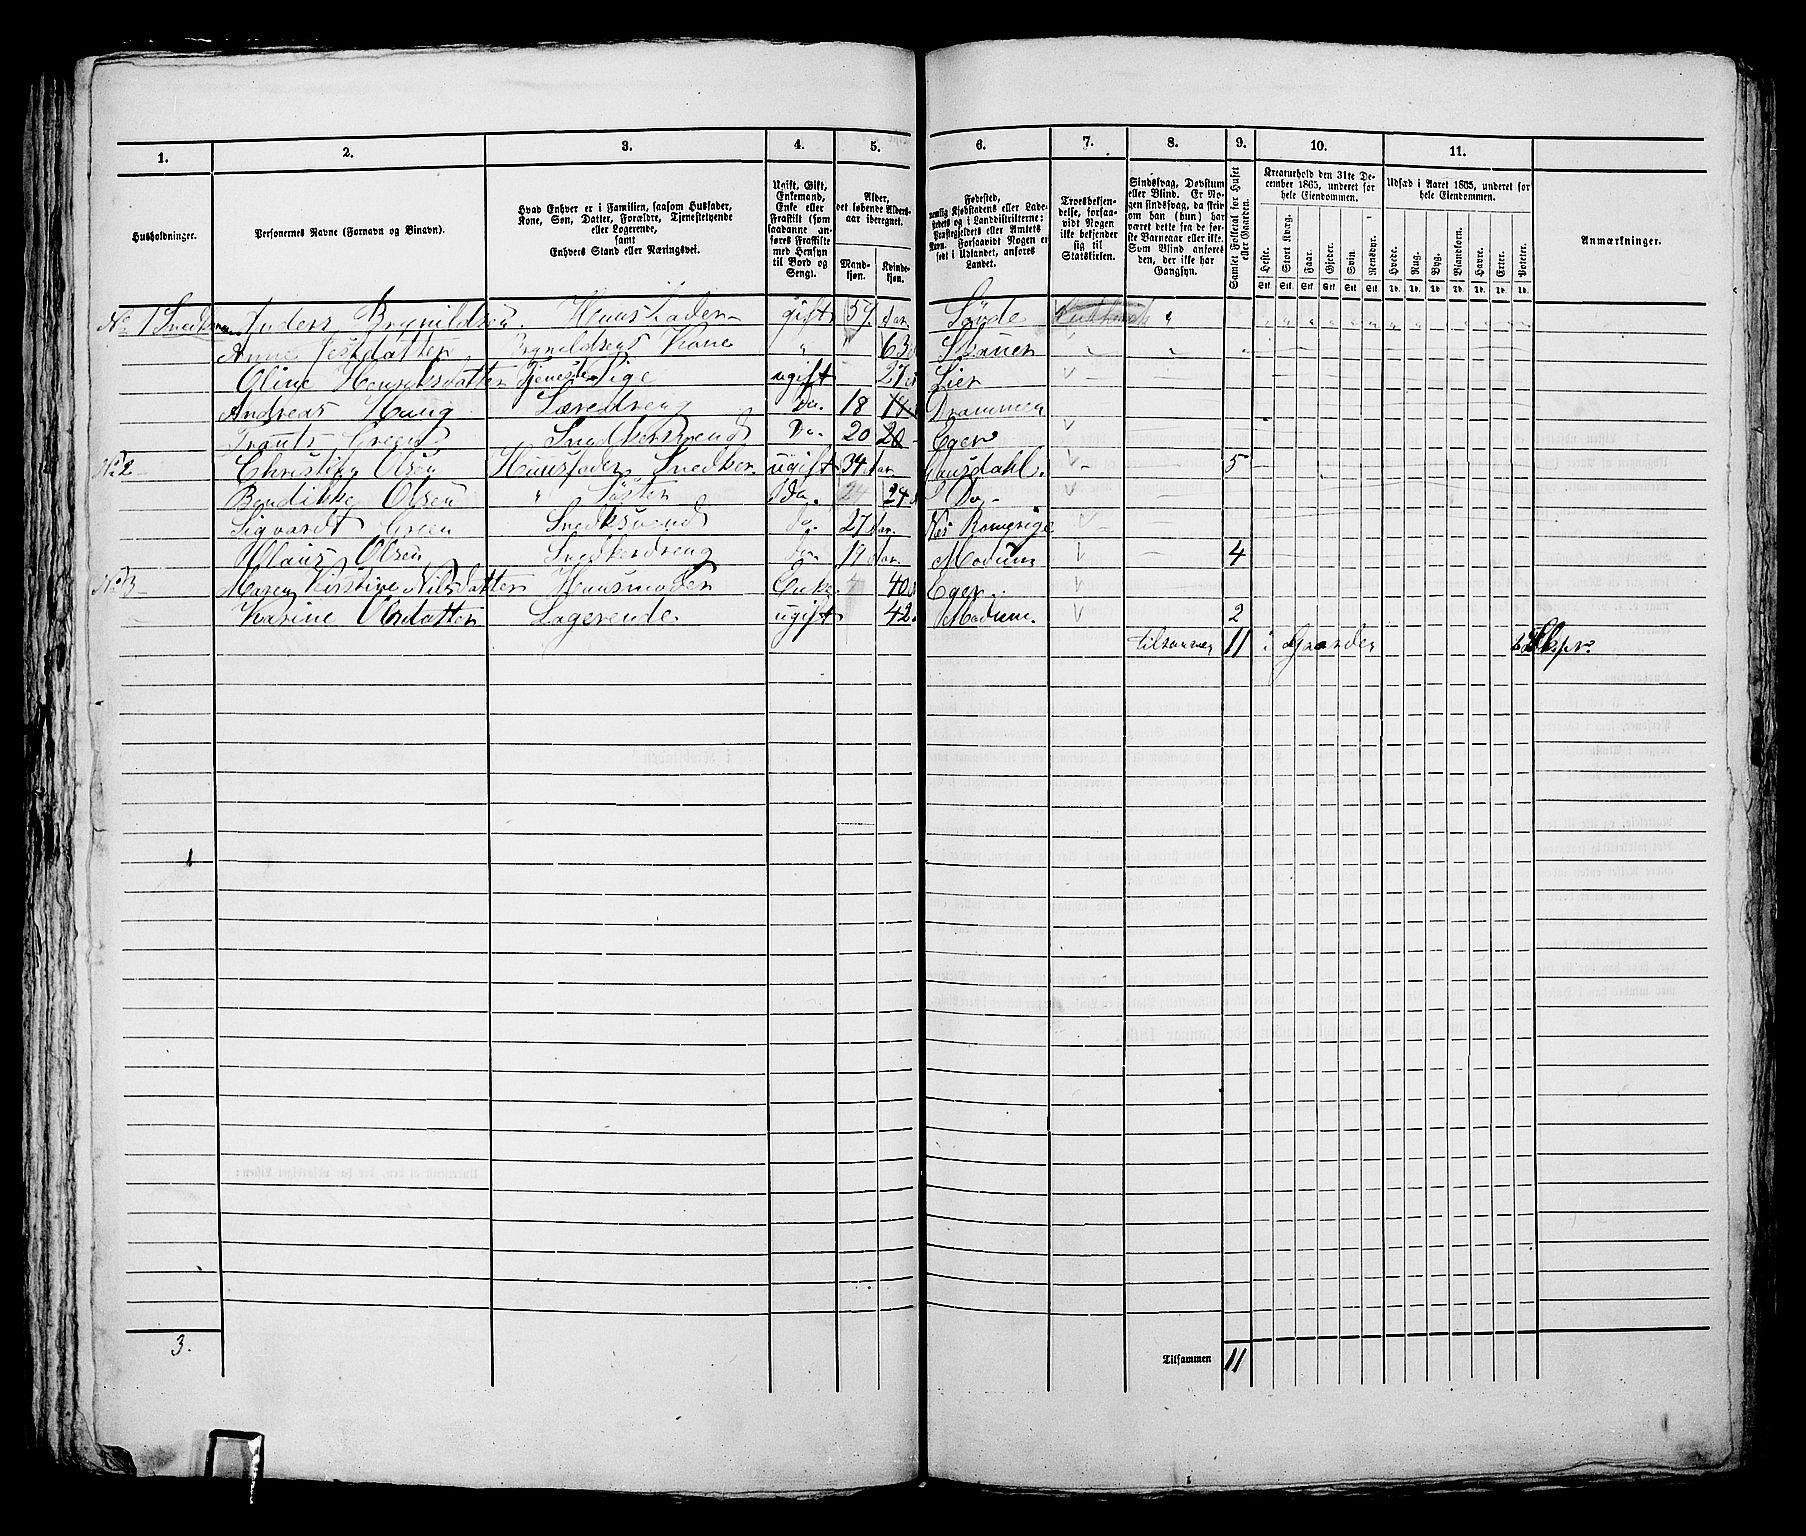 1. 2. 3. 4. 5. 6. 7. 8. 9. 10. 11.
Husholdninger.
Personernes Navne (Fornavn og Binavn).
Hvad Enhver er i Familien, saasom Husfader,
Kone, Søn, Datter, Forældre, Tjenestetyende
eller Logerende,
samt
Enhvers Stand eller Næringsvei.
Ugift, Gift,
Enkemand,
Enke eller
Fraskilt (som
saadanne an-
føres Fraskilte
med Hensyn
til Bord og
Seng).
Alder,
det løbende Alders-
aar iberegnet.
Mand-
kjøn.
Kvinde-
kjøn.
Fødested,
nemlig Kjøbstadens eller Lade-
stedets og i Landdistrikterne:
Præstegjeldets eller Amtets
Navn. Forsaavidt Nogen er
født i Udlandet, anføres
Landet.
Troesbekjen-
delse, forsaa-
vidt Nogen
ikke bekjender
sig til
Statskirken.
Sindssvag, Døvstum
eller Blind. Er No-
gen sindssvag, da skri-
ves om han (hun) har
været dette fra de før-
ste Barneaar eller ikke.
Som Blind anføres
den, der ikke har
Gangsyn.
Samlet Folketal for Huset
eller Gaarden.
Kreaturhold den 31te De-
cember 1865, underet for
hele Eiendommen.
Heste. Stort Kvæg. Faar. Gjeder. Svin. Rensdyr.
Stk. Stk. Stk. Stk. Stk. Stk.
Udsæd i Aaret 1865, underet for
hele Eiendommen.
Hvede. Rug. Byg. Blandkorn. Havre. Erter. Poteter.
Td. Td. Td. Td. Td. Td. Td.
Anmærkninger.
No 1 Anders Brynildsen Huusfader gift 57 Aar
Anne Brynildsens Kone " 63 Skauen
Oline Henriksdatter Tjeneste Pige ugift 27 Lier
Andreas Haug Læredreng Do. 18 Drammen
Green Snedkersvend Do. 20 20 Eger
No 2 Christian Olsen Huusfader Snedker ugift 34 Aar 5
Bendikke Olsen " Søster Do. 24 24 Do
Sigvardt Green Snedksvend do. 27 Aar Næs Romerige
Claus Olsen Snedkerdreng do. 19 Aar Modum 4
No 3 Maren Kirstine Nilsdatter Huusmoder Enke 40 Eger
Karine Olsdatter Logerende ugift 42 Modum. 2
tilsammen 11 i Gaarden
1
3. Tilsammen 11